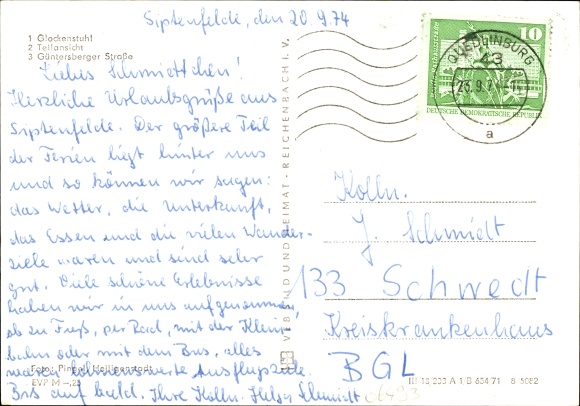 Siptenfelde, den 20.9.74
1 Glockenstuhl
2 Teilansicht
3 Güntersberger Straße
Liebes Schmidtchen!
Herzliche Urlaubsgrüße aus
Siptenfelde. Der größere Teil
der Ferien liegt hinter uns
und so können wir sagen:
das Wetter, die Unterkunft,
das Essen und die vielen Wander-
ziele waren und sind sehr
gut. Viele schöne Erlebnisse
haben wir in uns aufgenommen,
ob zu Fuß, per Rad, mit der Klein-
bahn oder mit dem Bus, alles
waren lohnenswerte Ausflugsziele.
Bis auf bald. Ihre Kolln. Helga Schmidt
Foto:
EVP M -,25
VERBUNDHEIMAT REICHENBACH I. V.
10
DEUTSCHE DEMOKRATISCHE REPUBLIK
QUEDLINBURG
43
a
Kolln.
J. Schmidt
133 Schwedt
Kreiskrankenhaus
BGL
c6493